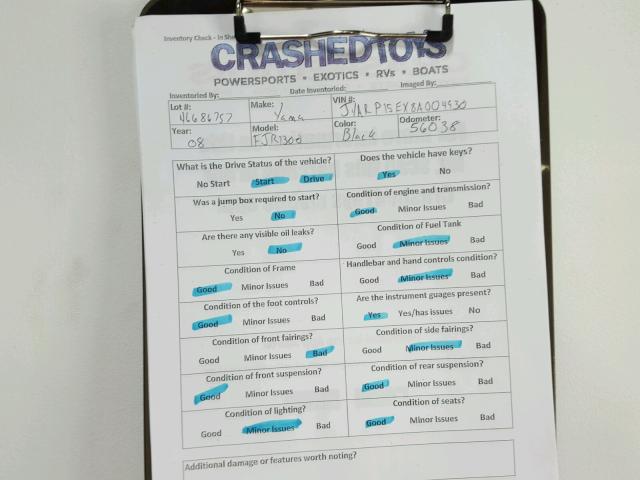 Inventory Check - In She
CRASHEDTOYS
POWERSPORTS • EXOTICS • RVs • BOATS
Inventoried By: Date Inventoried: Imaged By:
Lot #: 46686757 Make: Yama VIN #: JYARP15EX8A004930
Year: 08 Model: FJR1300 Color: Black Odometer: 56038
What is the Drive Status of the vehicle? Does the vehicle have keys?
No Start Start Drive Yes No
Was a jump box required to start? Condition of engine and transmission?
Yes No Good Minor Issues Bad
Are there any visible oil leaks? Condition of Fuel Tank
Yes No Good Minor Issues Bad
Condition of Frame Handlebar and hand controls condition?
Good Minor Issues Bad Good Minor Issues Bad
Condition of the foot controls? Are the instrument guages present?
Good Minor Issues Bad Yes Yes/has issues No
Condition of front fairings? Condition of side fairings?
Good Minor Issues Bad Good Minor Issues Bad
Condition of front suspension? Condition of rear suspension?
Good Minor Issues Bad Good Minor Issues Bad
Condition of lighting? Condition of seats?
Good Minor Issues Bad Good Minor Issues Bad
Additional damage or features worth noting?